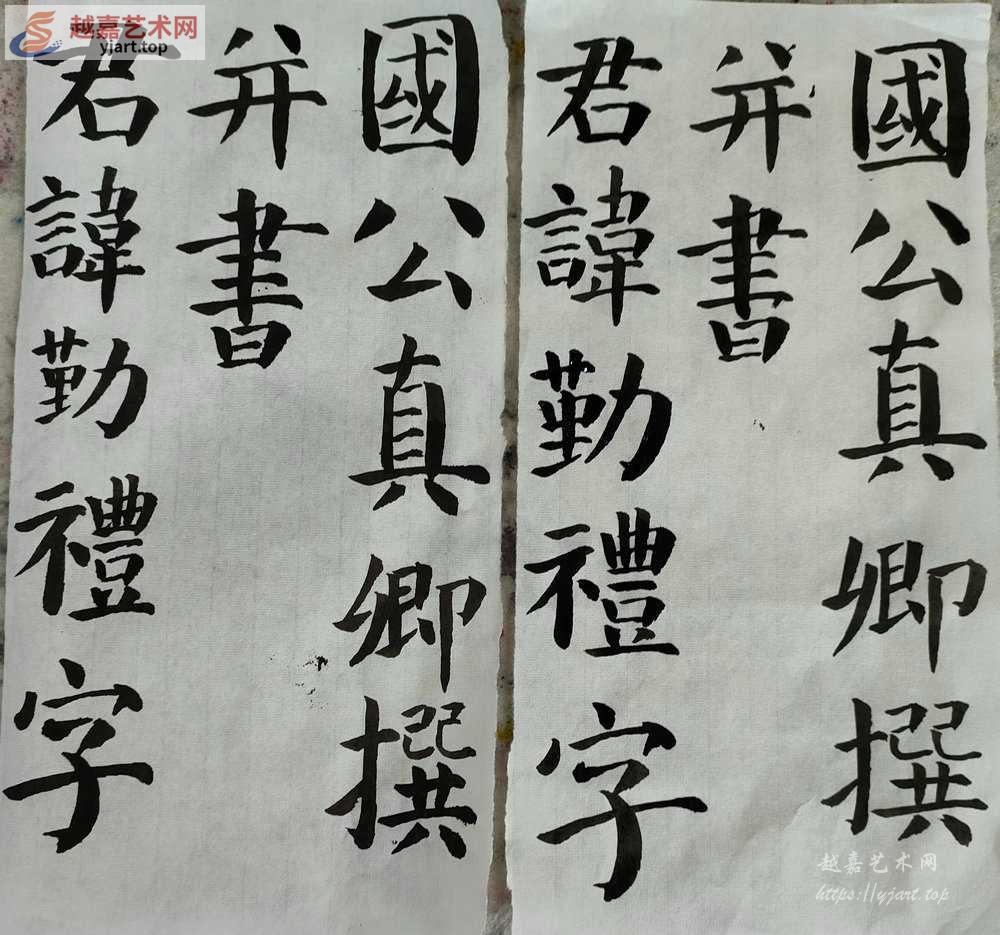 國公真卿撰
并書
君諱勤禮字
國公真卿撰
并書
君諱勤禮字
越嘉艺术网
yjart.top
越嘉艺术网
https://yjart.top